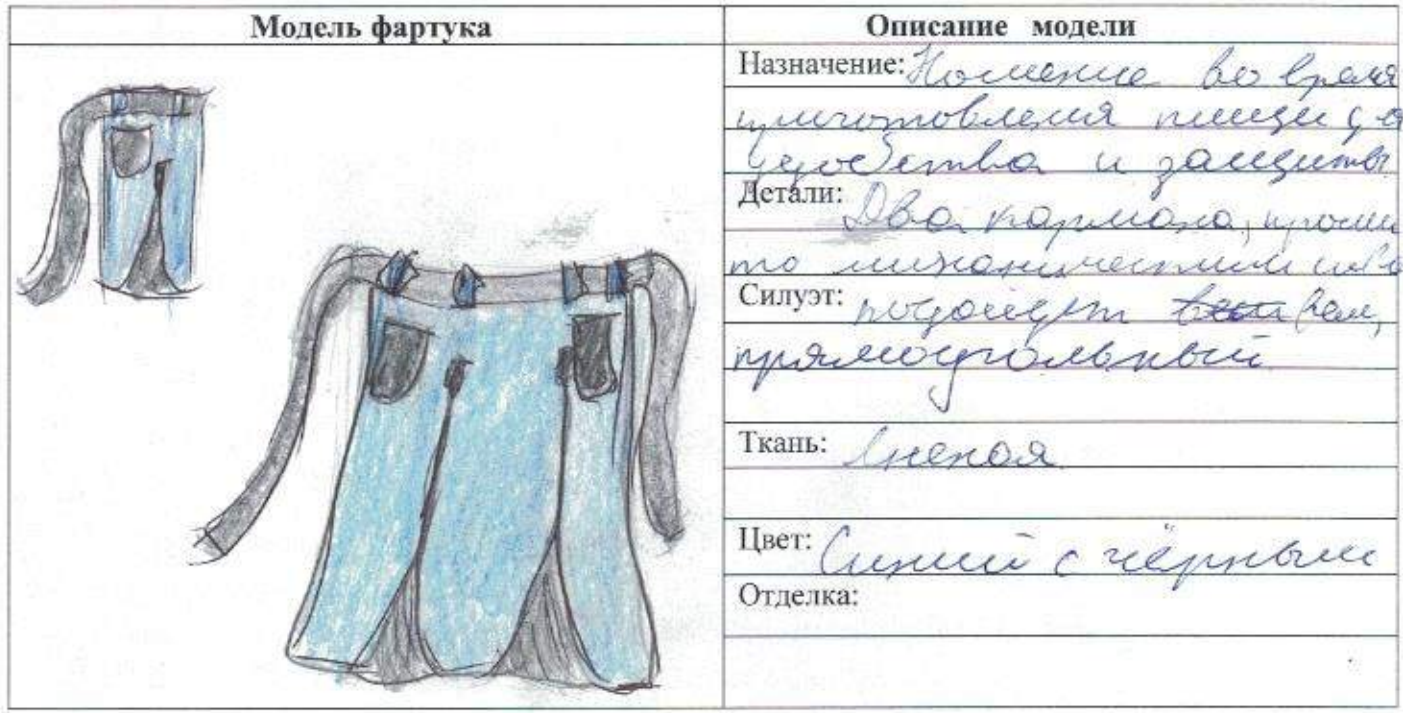 Модель фартука
Описание модели
Назначение: Ношение во время
приготовления пищи для
удобства и защиты
Детали: Два кармана,
то
Силуэт: подойдет всем,
прямоугольный
Ткань: Льняная
Цвет: Синий с чёрным
Отделка: